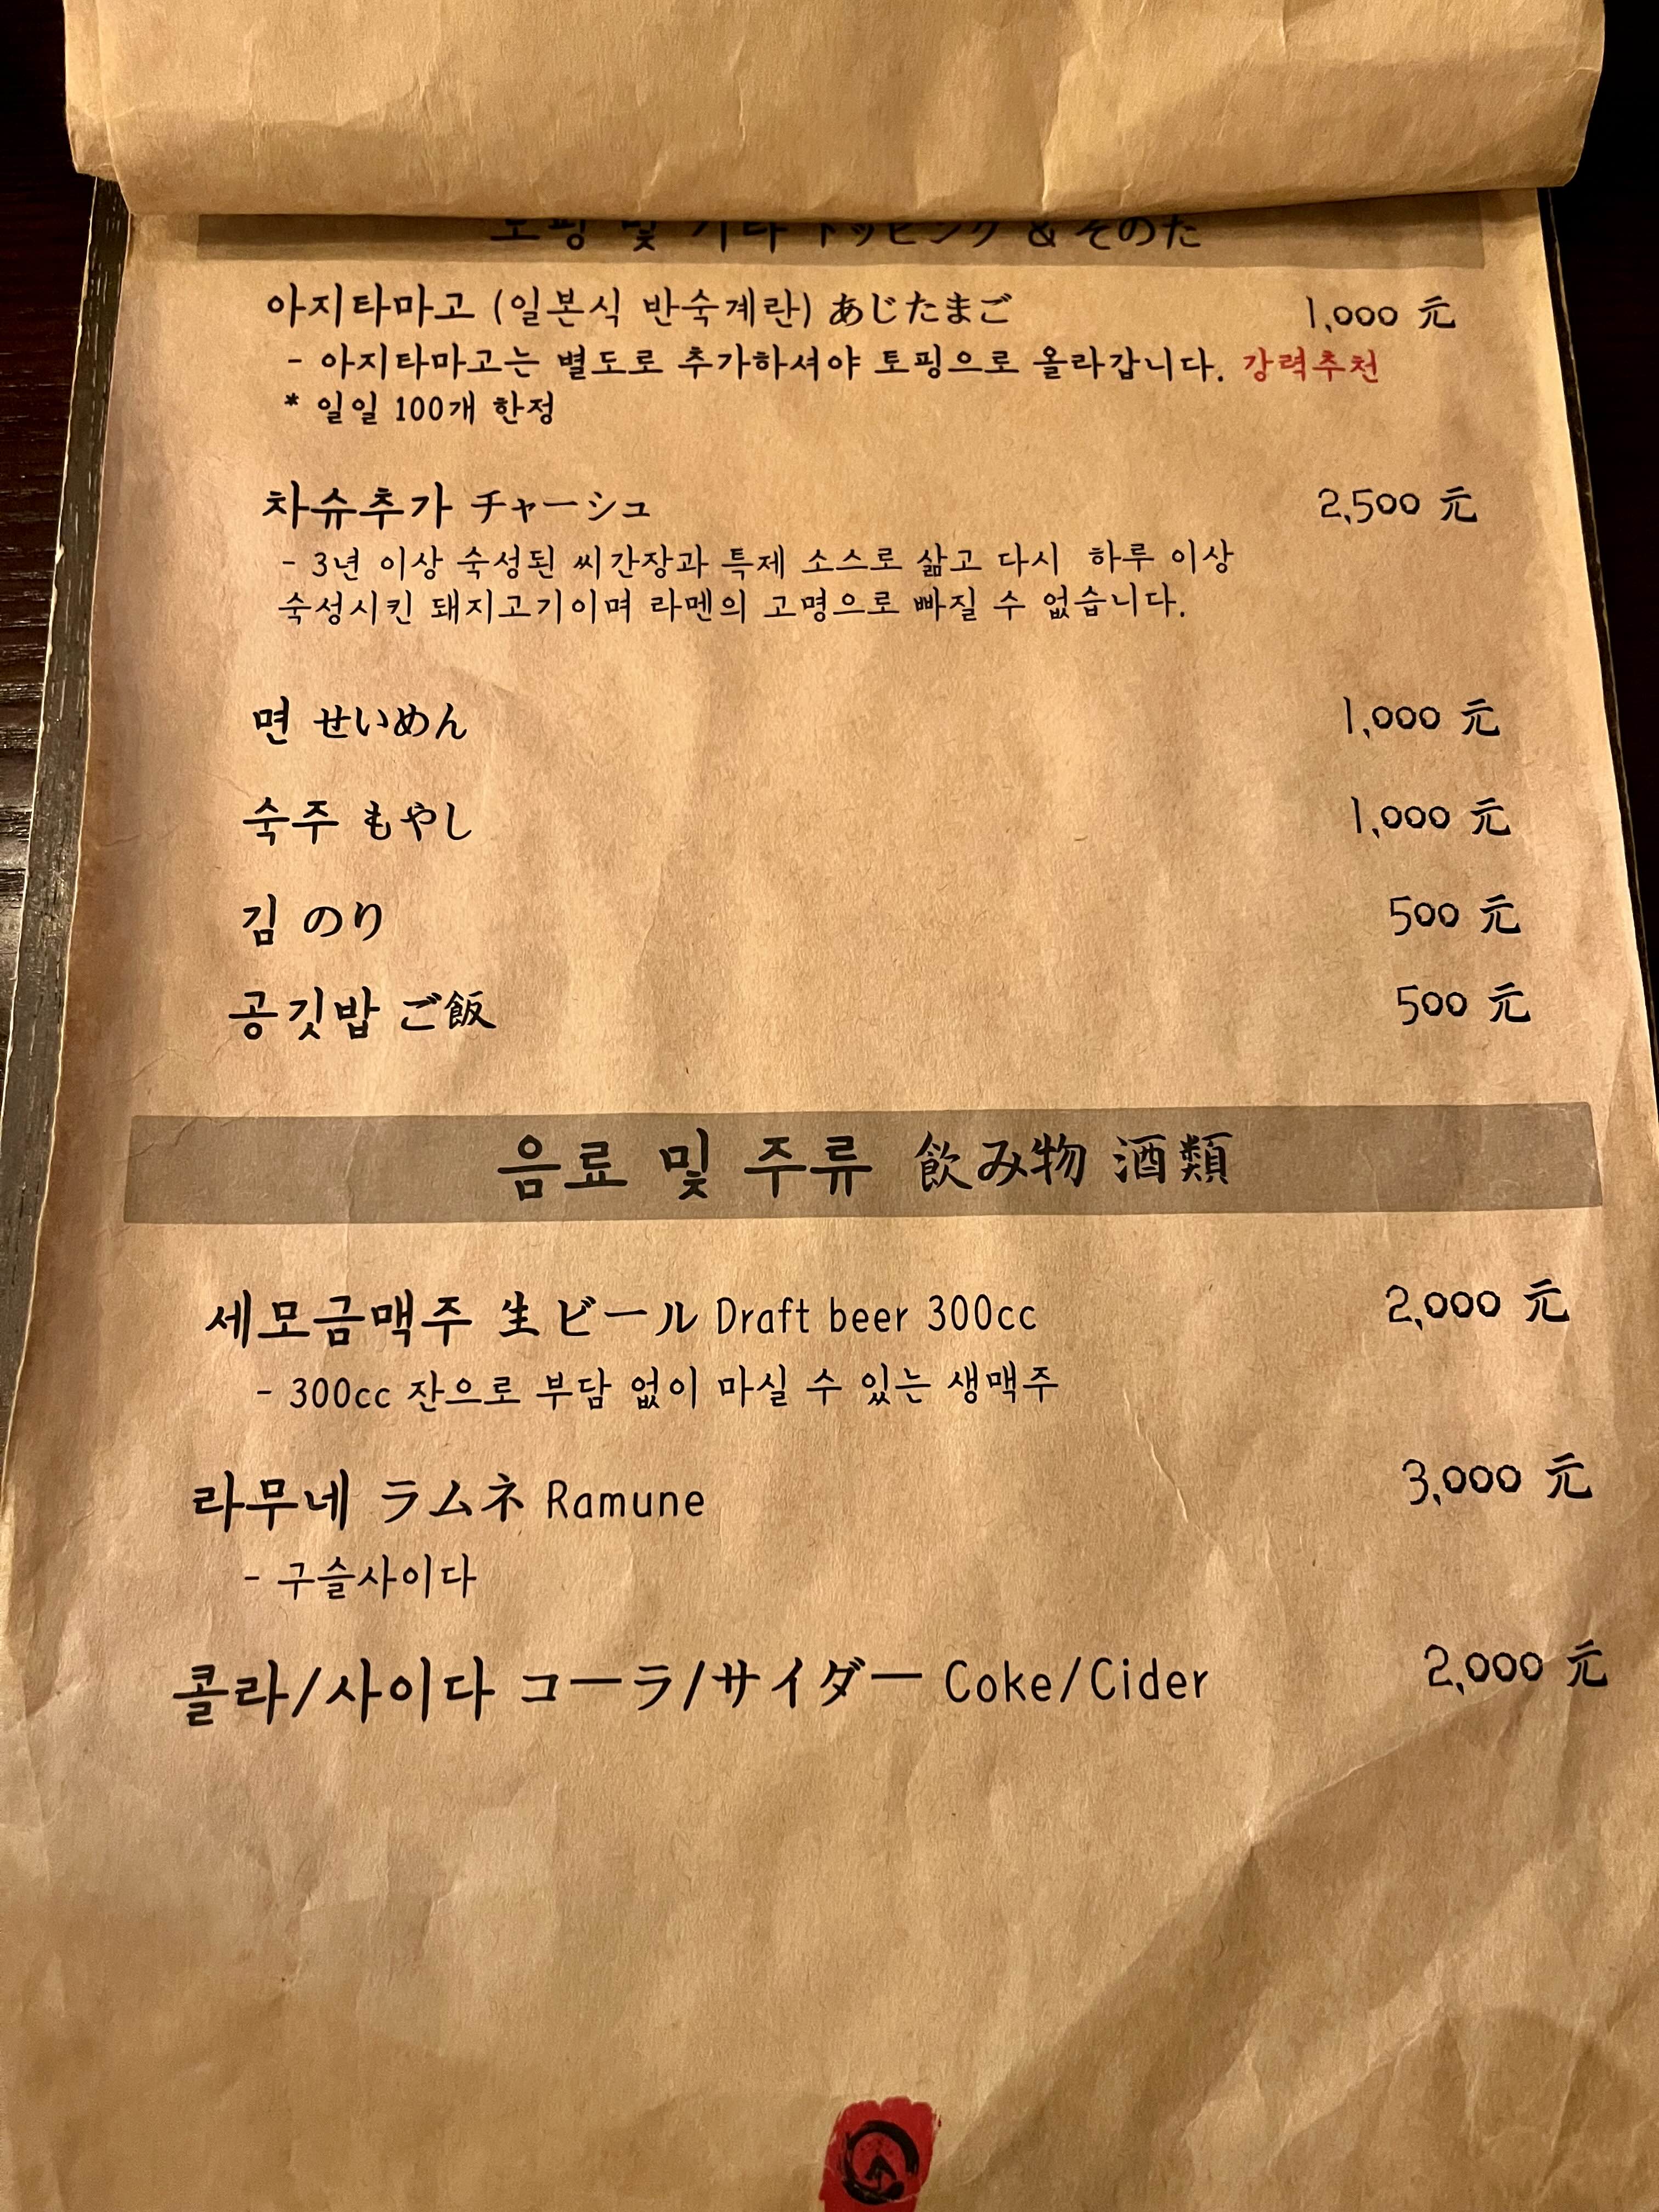 토핑 및 기타 トッピング & そのた
아지타마고 (일본식 반숙계란) あじたまご 1,000 元
- 아지타마고는 별도로 추가하셔야 토핑으로 올라갑니다. 강력추천
* 일일 100개 한정
차슈추가 チャーシュ 2,500 元
- 3년 이상 숙성된 씨간장과 특제 소스로 삶고 다시 하루 이상
숙성시킨 돼지고기이며 라멘의 고명으로 빠질 수 없습니다.
면 せいめん 1,000 元
숙주 もやし 1,000 元
김 のり 500 元
공깃밥 ご飯 500 元
음료 및 주류 飲み物 酒類
세모금맥주 生ビール Draft beer 300cc 2,000 元
- 300cc 잔으로 부담 없이 마실 수 있는 생맥주
라무네 ラムネ Ramune 3,000 元
- 구슬사이다
콜라/사이다 コーラ/サイダー Coke/Cider 2,000 元